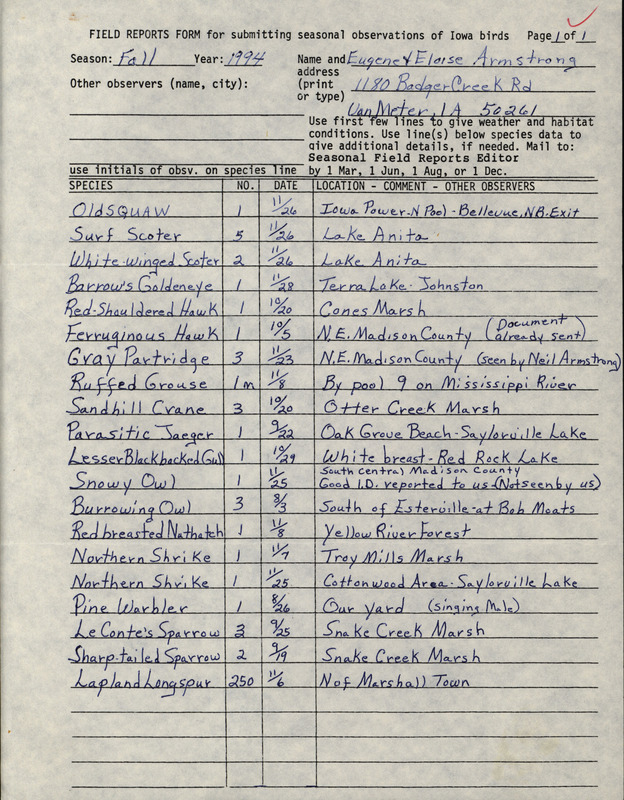 FIELD REPORTS FORM for submitting seasonal observations of Iowa birds Page 1 of 1
Season: Fall Year: 1994 Name and Eugene & Eloise Armstrong
address
Other observers (name, city): (print 1180 Badger Creek Rd
or type)
Van Meter, IA 50261
Use first few lines to give weather and habitat
conditions. Use line(s) below species data to
give additional details, if needed. Mail to:
Seasonal Field Reports Editor
use initials of obsv. on species line by 1 Mar, 1 Jun, 1 Aug, or 1 Dec.
SPECIES NO. DATE LOCATION - COMMENT - OTHER OBSERVERS
Oldsquaw 1 11/26 Iowa Power-N Pool-Bellevue, NB. Exit
Surf Scoter 5 11/26 Lake Anita
White-winged Scoter 2 11/26 Lake Anita
Barrow's Goldeneye 1 11/28 Terra Lake-Johnston
Red-Shouldered Hawk 1 10/20 Cones Marsh
Ferruginous Hawk 1 10/5 N.E. Madison County (Document already sent)
Gray Partridge 3 11/23 N.E. Madison County (seen by Neil Armstrong)
Ruffed Grouse 1m 11/8 By pool 9 on Mississippi River
Sandhill Crane 3 10/20 Otter Creek Marsh
Parasitic Jaeger 1 9/22 Oak Grove Beach-Saylorville Lake
Lesser Blackbacked Gull 1 10/29 White breast-Red Rock Lake
South Central Madison County
Snowy Owl 1 11/25 Good I.D. reported to us (Not seen by us)
Burrowing Owl 3 8/3 South of Esterville-at Bob Moats
Red breasted Nathatch 1 11/8 Yellow River Forest
Northern Shrike 1 11/7 Troy Mills Marsh
Northern Shrike 1 11/25 Cottonwood Area-Saylorville Lake
Pine Warbler 1 8/26 Our yard (singing Male)
Le Conte's Sparrow 3 9/25 Snake Creek Marsh
Sharp-tailed Sparrow 2 9/19 Snake Creek Marsh
Lapland Longspur 250 11/6 N of Marshall Town